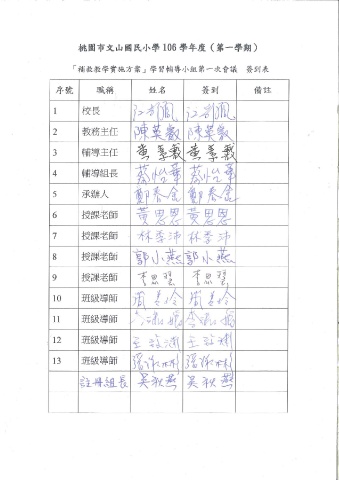 桃園市文山國民小學 106 學年度（第一學期）
「補救教學實施方案」學習輔導小組第一次會議 簽到表
序號 職稱 姓名 簽到 備註
1 校長
2 教務主任 陳英毅 陳英毅
3 輔導主任
4 輔導組長 蔡怡華 蔡怡華
5 承辦人 鄭春金 鄭春金
6 授課老師 黃恩恩 黃恩恩
7 授課老師 林季沛 林季沛
8 授課老師 郭小燕 郭小燕
9 授課老師 李思瑩 李思瑩
10 班級導師
11 班級導師
12 班級導師
13 班級導師
註冊組長 吳秋燕 吳秋燕